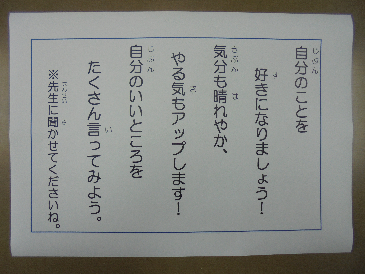 自分のことを
好きになりましょう!
気分も晴れやか、
やる気もアップします!
自分のいいところを
たくさん言ってみよう。
※先生に聞かせてくださいね。